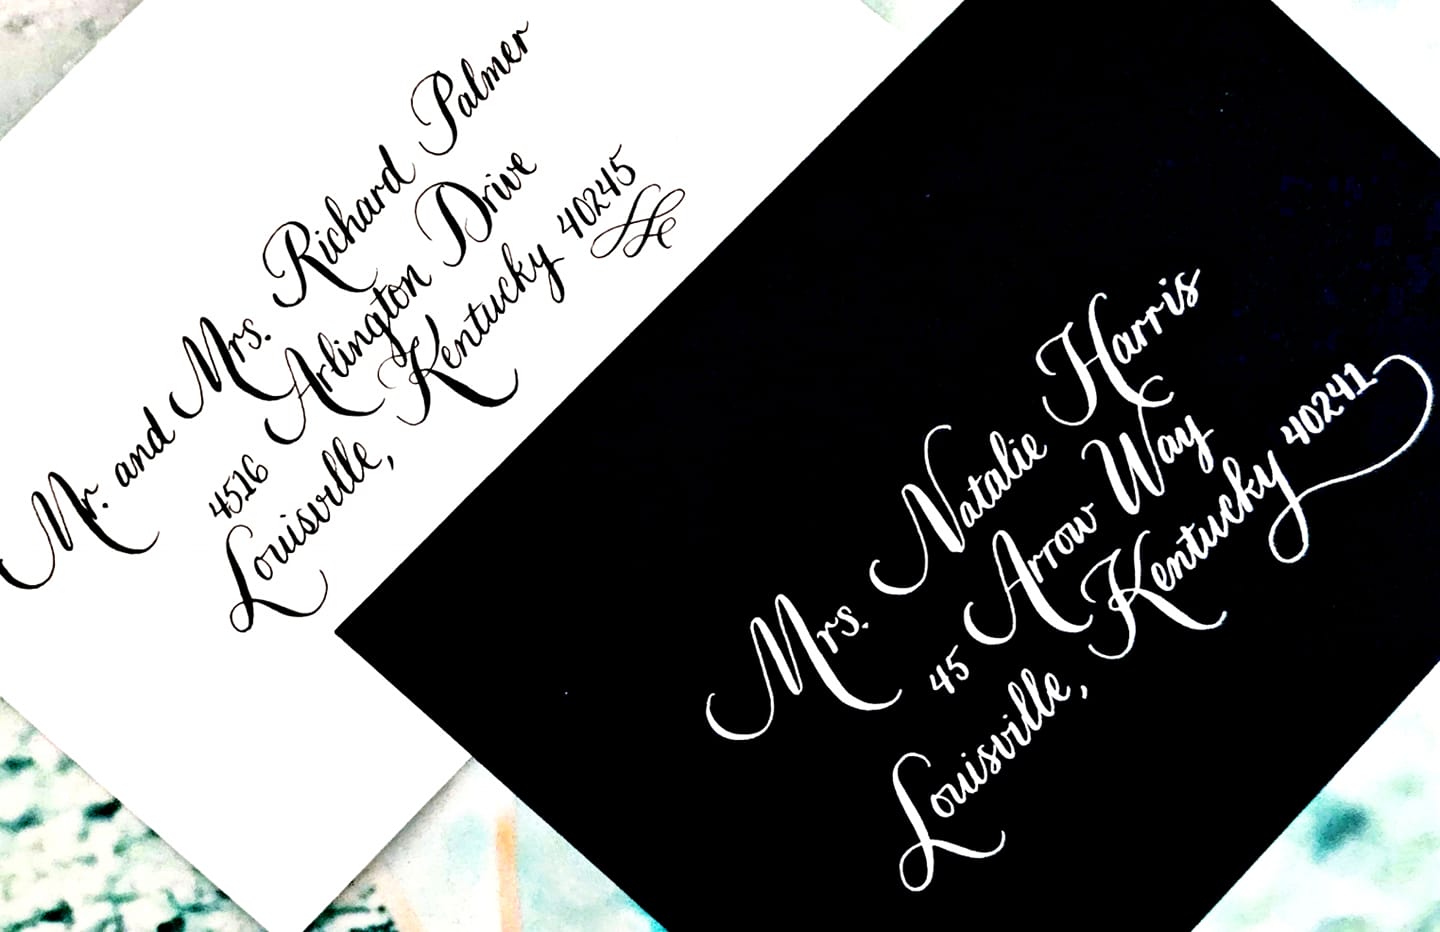 Mr. and Mrs. Richard Palmer
4516 Arlington Drive
Louisville, Kentucky 40245
Mrs. Natalie Harris
45 Arrow Way
Louisville, Kentucky 40241